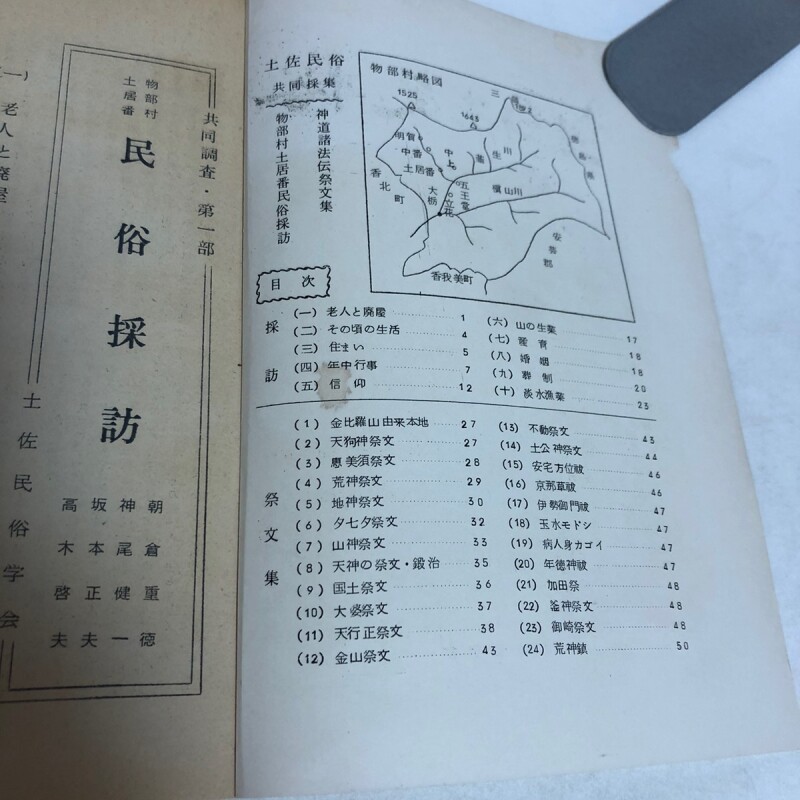 土佐民俗
共同採集
神道諸法伝祭文集
物部村土居番民俗採訪
物部村略図
三嶺
1525
1645
明賀
中番
土居番
中上
五王堂
大栃
立花
笹生川
槇山川
徳島県
香北町
安芸郡
香我美町
目次
採訪
(一) 老人と廃屋 1
(二) その頃の生活 4
(三) 住まい 5
(四) 年中行事 7
(五) 信仰 12
(六) 山の生業 17
(七) 産育 18
(八) 婚姻 18
(九) 葬制 20
(十) 淡水漁業 23
祭文集
(1) 金比羅山由来本地 27
(2) 天狗神祭文 27
(3) 恵美須祭文 28
(4) 荒神祭文 29
(5) 地神祭文 30
(6) 夕七夕祭文 32
(7) 山神祭文 33
(8) 天神の祭文・鍛治 35
(9) 国土祭文 36
(10) 大婆祭文 37
(11) 天行正祭文 38
(12) 金山祭文 43
(13) 不動祭文 43
(14) 土公神祭文 44
(15) 安宅万位祓 46
(16) 京那草祓 46
(17) 伊勢御門祓 47
(18) 玉水モドシ 47
(19) 病人身カゴイ 47
(20) 年徳神祓 47
(21) 加田祭 48
(22) 釜神祭文 48
(23) 御崎祭文 48
(24) 荒神鎮 50
共同調査・第一部
物部村
土居番
民俗採訪
土佐民俗学会
朝倉重徳
神尾健一
坂本正夫
高木啓夫
(一) 老人と廃屋